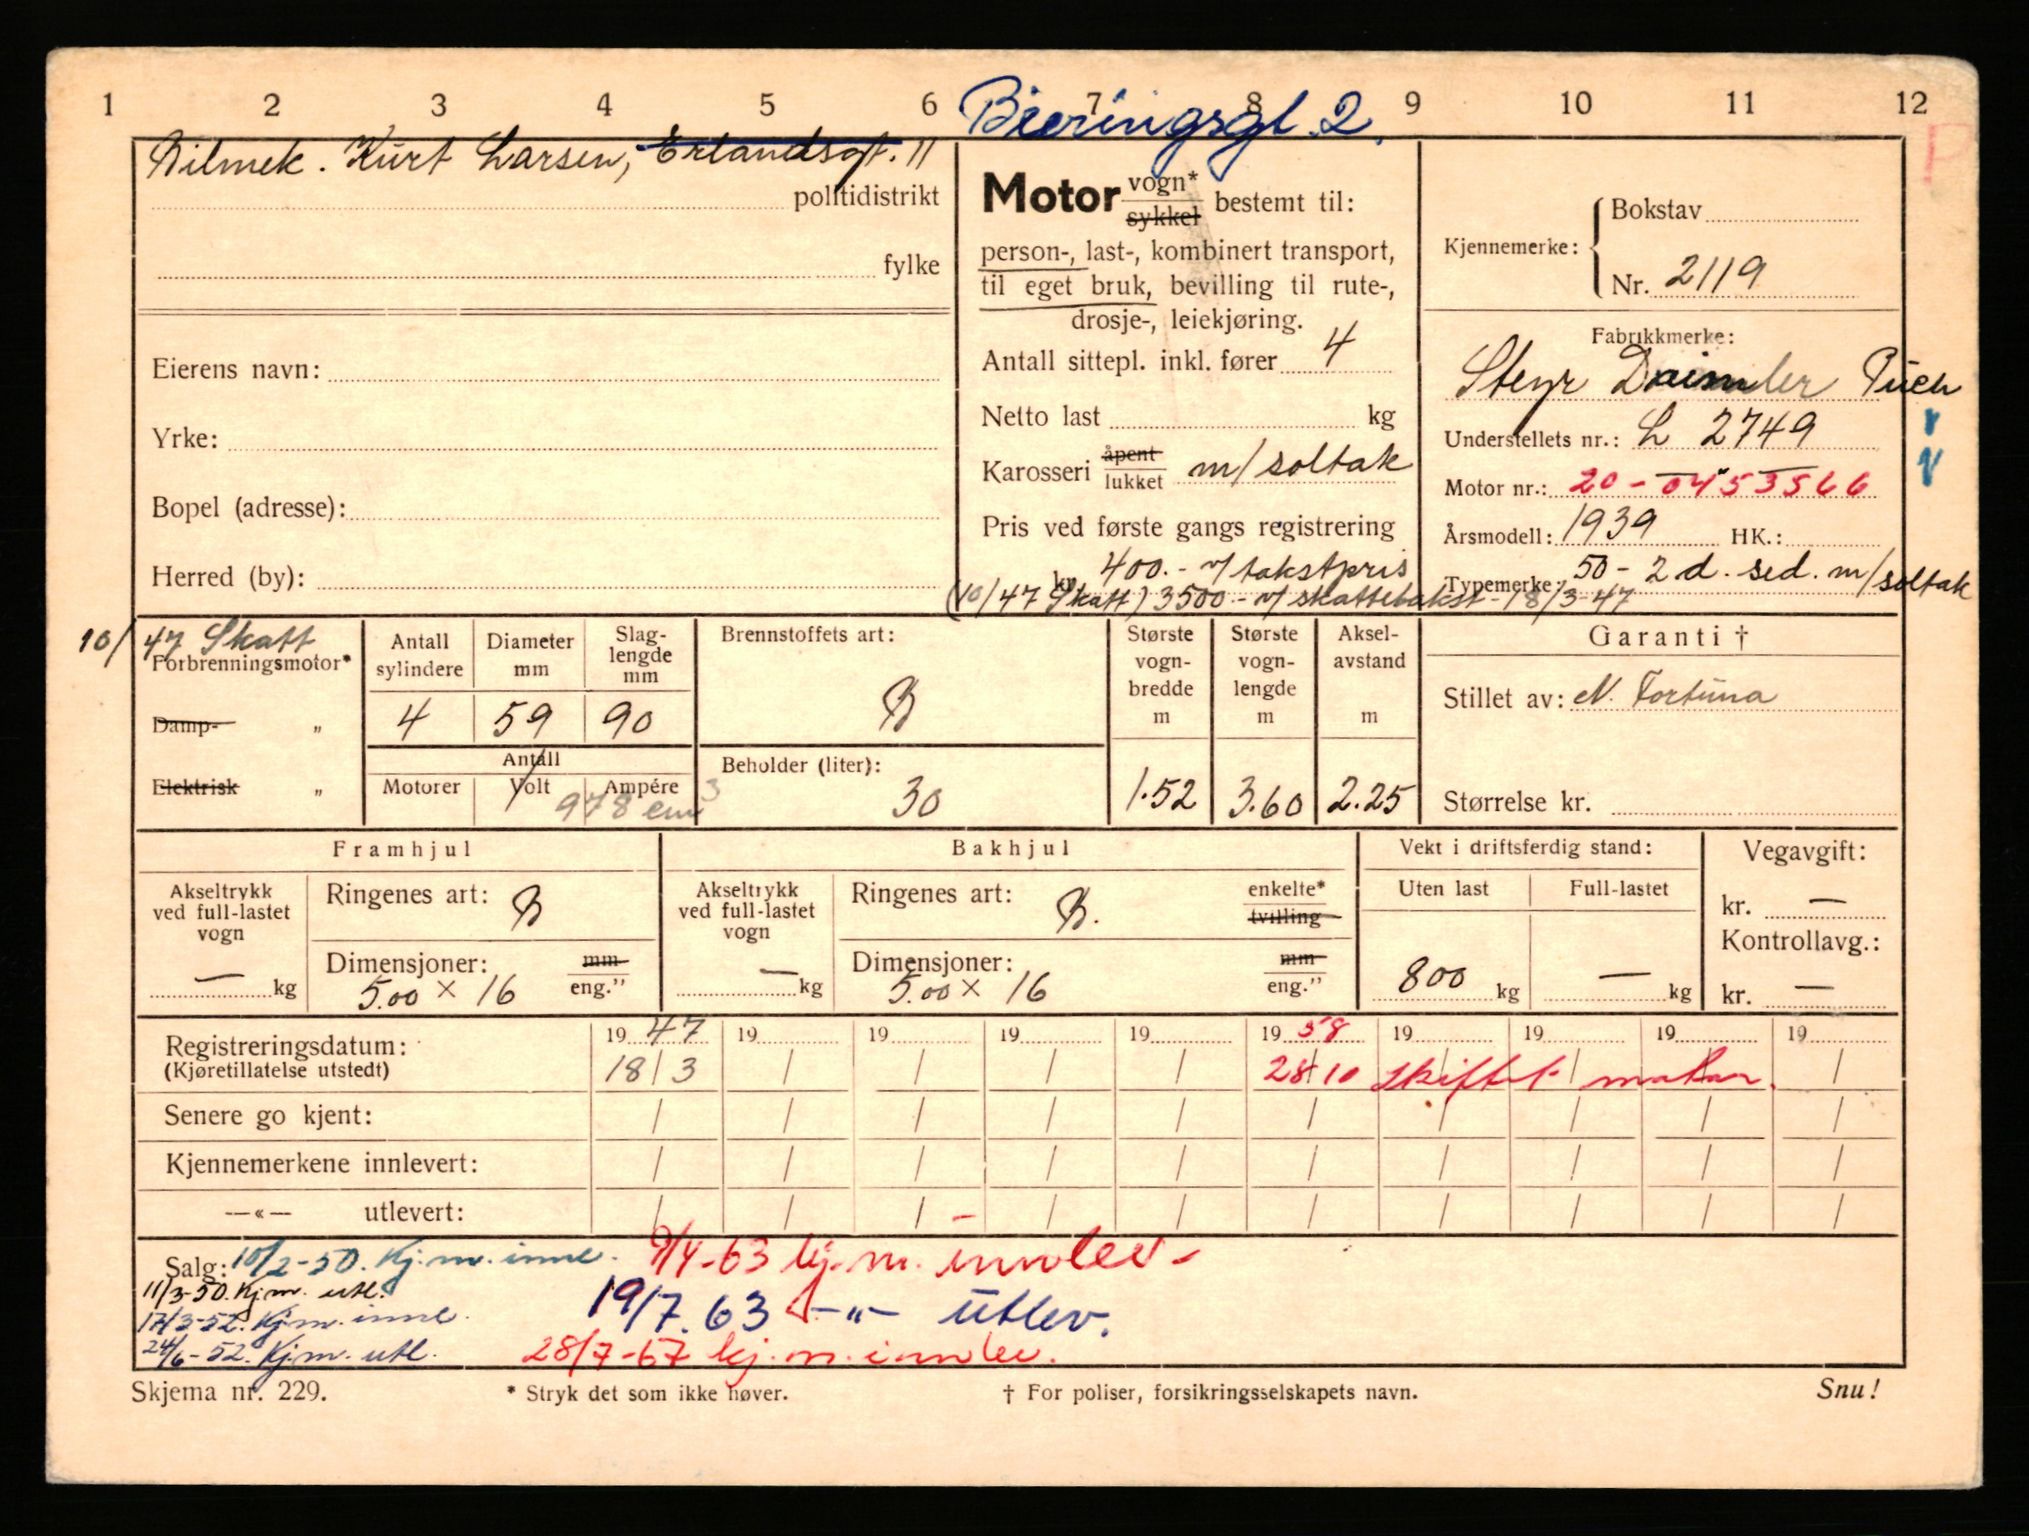 1 2 3 4 5 6 7 8 9 10 11 12
Bieringsgt. 2.
Bilmek. Kurt Larsen, Erlandsgt. 11
politidistrikt
fylke
Eierens navn:
Yrke:
Bopel (adresse):
Herred (by):
Motor vogn* sykkel bestemt til:
person-, last-, kombinert transport,
til eget bruk, bevilling til rute-,
drosje-, leiekjøring.
Antall sittepl. inkl. fører 4
Netto last kg
Karosseri åpent lukket m/soltak
Pris ved første gangs registrering
kr. 400.- v/ takstpris
(10/47 Skatt) 3500.- v/ skattetakst - 18/3-47
Kjennemerke: Bokstav
Nr. 2119
Fabrikkmerke:
Steyr Daimler Puch
Understellets nr.: L 2749
Motor nr.: 20-0453566
Årsmodell: 1939 HK.:
Typemerke: 50 - 2 d. sed. m/soltak
10/47 Skatt
Forbrenningsmotor*
Damp- „
Elektrisk „
Antall sylindere
Diameter mm
Slag-lengde mm
4 59 90
Antall
Motorer Volt Ampére
978 cm3
Brennstoffets art:
B
Beholder (liter):
30
Største vogn-bredde m
Største vogn-lengde m
Aksel-avstand m
1.52 3.60 2.25
Garanti †
Stillet av: N. Fortuna
Størrelse kr.
Framhjul
Akseltrykk ved full-lastet vogn
— kg
Ringenes art: B
Dimensjoner: mm eng."
5.00 × 16
Bakhjul
Akseltrykk ved full-lastet vogn
— kg
Ringenes art: B. enkelte* tvilling
Dimensjoner: mm eng."
5.00 × 16
Vekt i driftsferdig stand:
Uten last Full-lastet
800 kg — kg
Vegavgift:
kr. —
Kontrollavg.:
kr. —
19 47 19 19 19 19 19 58 19 19 19 19
Registreringsdatum:
(Kjøretillatelse utstedt)
18/3 / / / / 28/10 skiftet motor. /
Senere go kjent: / / / / / / / / / /
Kjennemerkene innlevert: / / / / / / / / / /
—«— utlevert: / / / / / / / / / /
Salg: 10/2-50. Kj.m. innl. 9/4-63 kj.m. innlev-
11/3-50. Kj.m. utl.
17/3-52. Kj.m. innl. 19/7.63 -"- Utlev.
24/6-52. Kj.m. utl. 28/7-67 kj.m. innlev.
Skjema nr. 229.
* Stryk det som ikke høver.
† For poliser, forsikringsselskapets navn.
Snu!